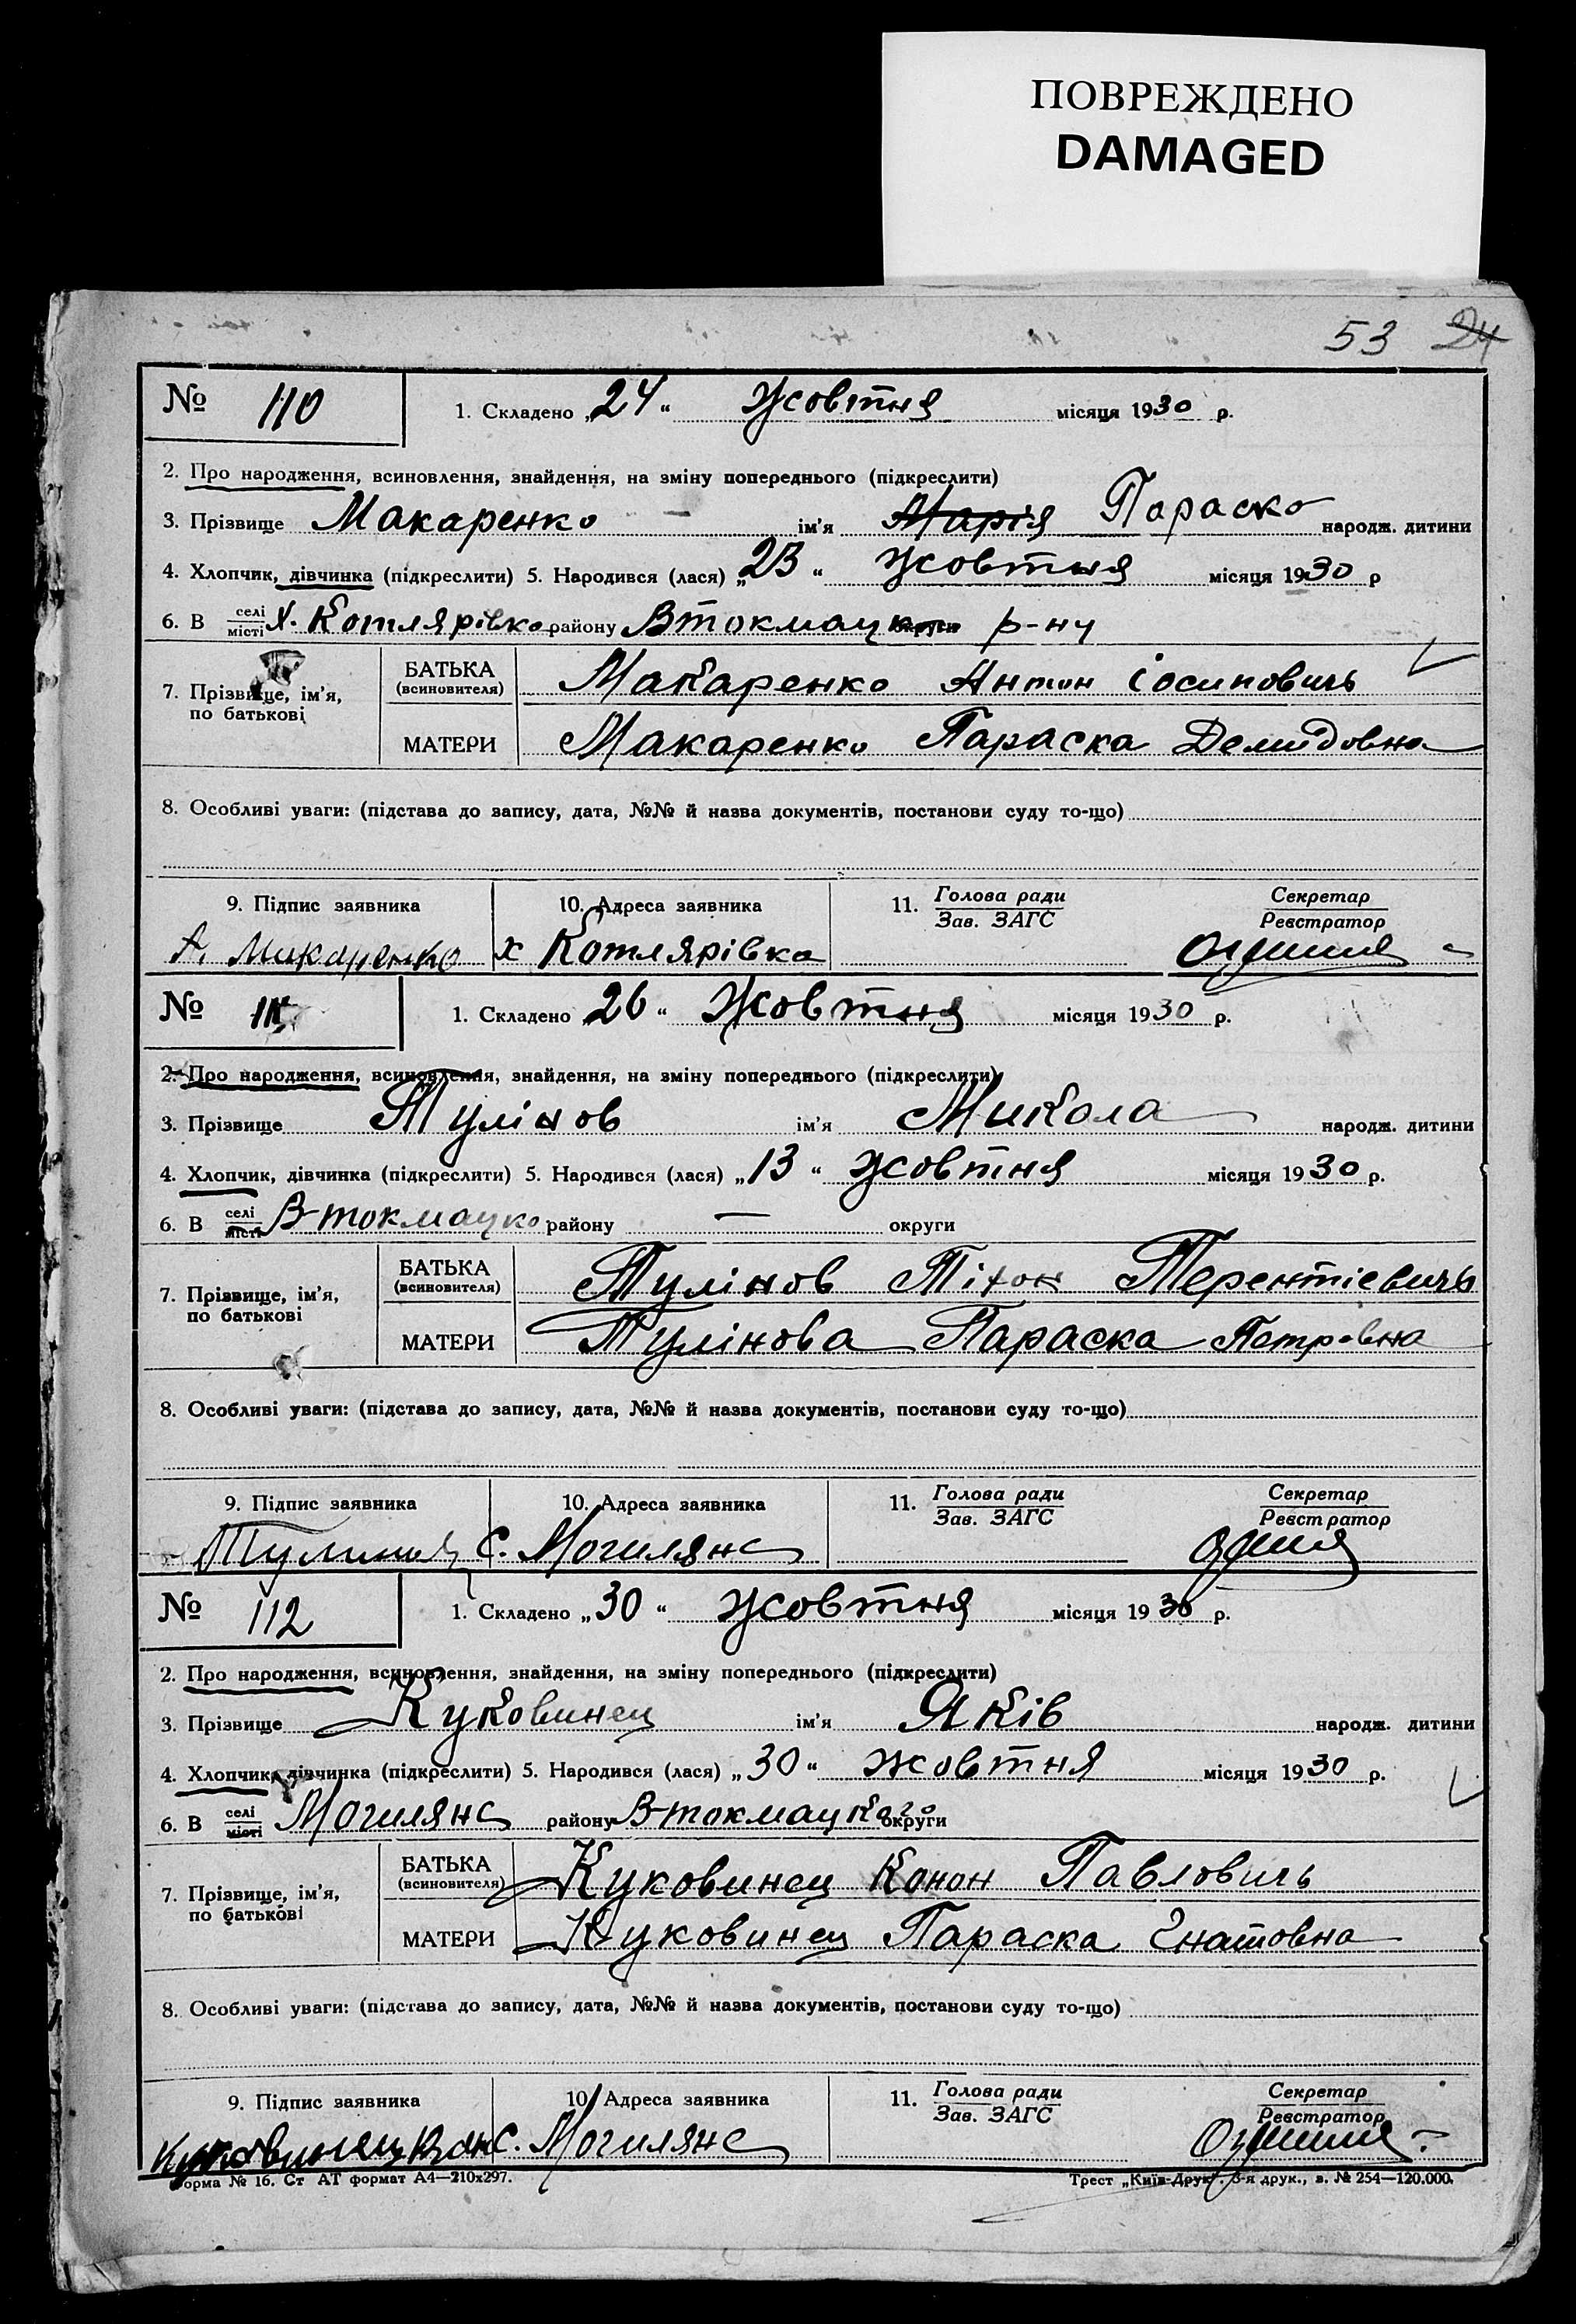 ПОВРЕЖДЕНО
DAMAGED
53 24
№ 110 1. Складено „24“ Жовтня місяця 1930 р.
2. Про народження, всиновлення, знайдення, на зміну попереднього (підкреслити)
3. Прізвище Макаренко ім’я Марія Параска народж. дитини
4. Хлопчик, дівчинка (підкреслити) 5. Народився (лася) „23“ Жовтня місяця 1930 р
6. В селі місті х. Котлярівка району Втокмацк округи р-ну
7. Прізвище, ім’я, по батькові БАТЬКА (всиновителя) Макаренко Антон Іосиповичь
МАТЕРИ Макаренко Параска Демидовна
8. Особливі уваги: (підстава до запису, дата, №№ й назва документів, постанови суду то-що)
9. Підпис заявника 10. Адреса заявника 11. Голова ради Зав. ЗАГС Секретар Реєстратор
А. Макаренко х Котлярівка
№ 1. Складено 26“ Жовтня місяця 1930 р.
2. Про народження, всиновлення, знайдення, на зміну попереднього (підкреслити)
3. Прізвище Тулінов ім’я Микола народж. дитини
4. Хлопчик, дівчинка (підкреслити) 5. Народився (лася) „13“ Жовтня місяця 1930 р.
6. В селі місті В-токмацко району — округи
7. Прізвище, ім’я, по батькові БАТЬКА (всиновителя) Тулінов Тіхон Терентіевичь
МАТЕРИ Тулінова Параска Петровна
8. Особливі уваги: (підстава до запису, дата, №№ й назва документів, постанови суду то-що)
9. Підпис заявника 10. Адреса заявника 11. Голова ради Зав. ЗАГС Секретар Реєстратор
С. Могиляне
№ 112 1. Складено „30“ Жовтня місяця 1930 р.
2. Про народження, всиновлення, знайдення, на зміну попереднього (підкреслити)
3. Прізвище Куковинец ім’я Яків народж. дитини
4. Хлопчик, дівчинка (підкреслити) 5. Народився (лася) „30“ жовтня місяця 1930 р.
6. В селі місті Могиляне району В-токмацкого округи
7. Прізвище, ім’я, по батькові БАТЬКА (всиновителя) Куковинец Конон Павловичь
МАТЕРИ Куковинец Параска Гнатовна
8. Особливі уваги: (підстава до запису, дата, №№ й назва документів, постанови суду то-що)
9. Підпис заявника 10. Адреса заявника 11. Голова ради Зав. ЗАГС Секретар Реєстратор
С. Могиляне
орма № 16. Ст АТ формат А4—210х297. Трест „Київ-Друк“. 3-я друк., з. № 254—120.000.